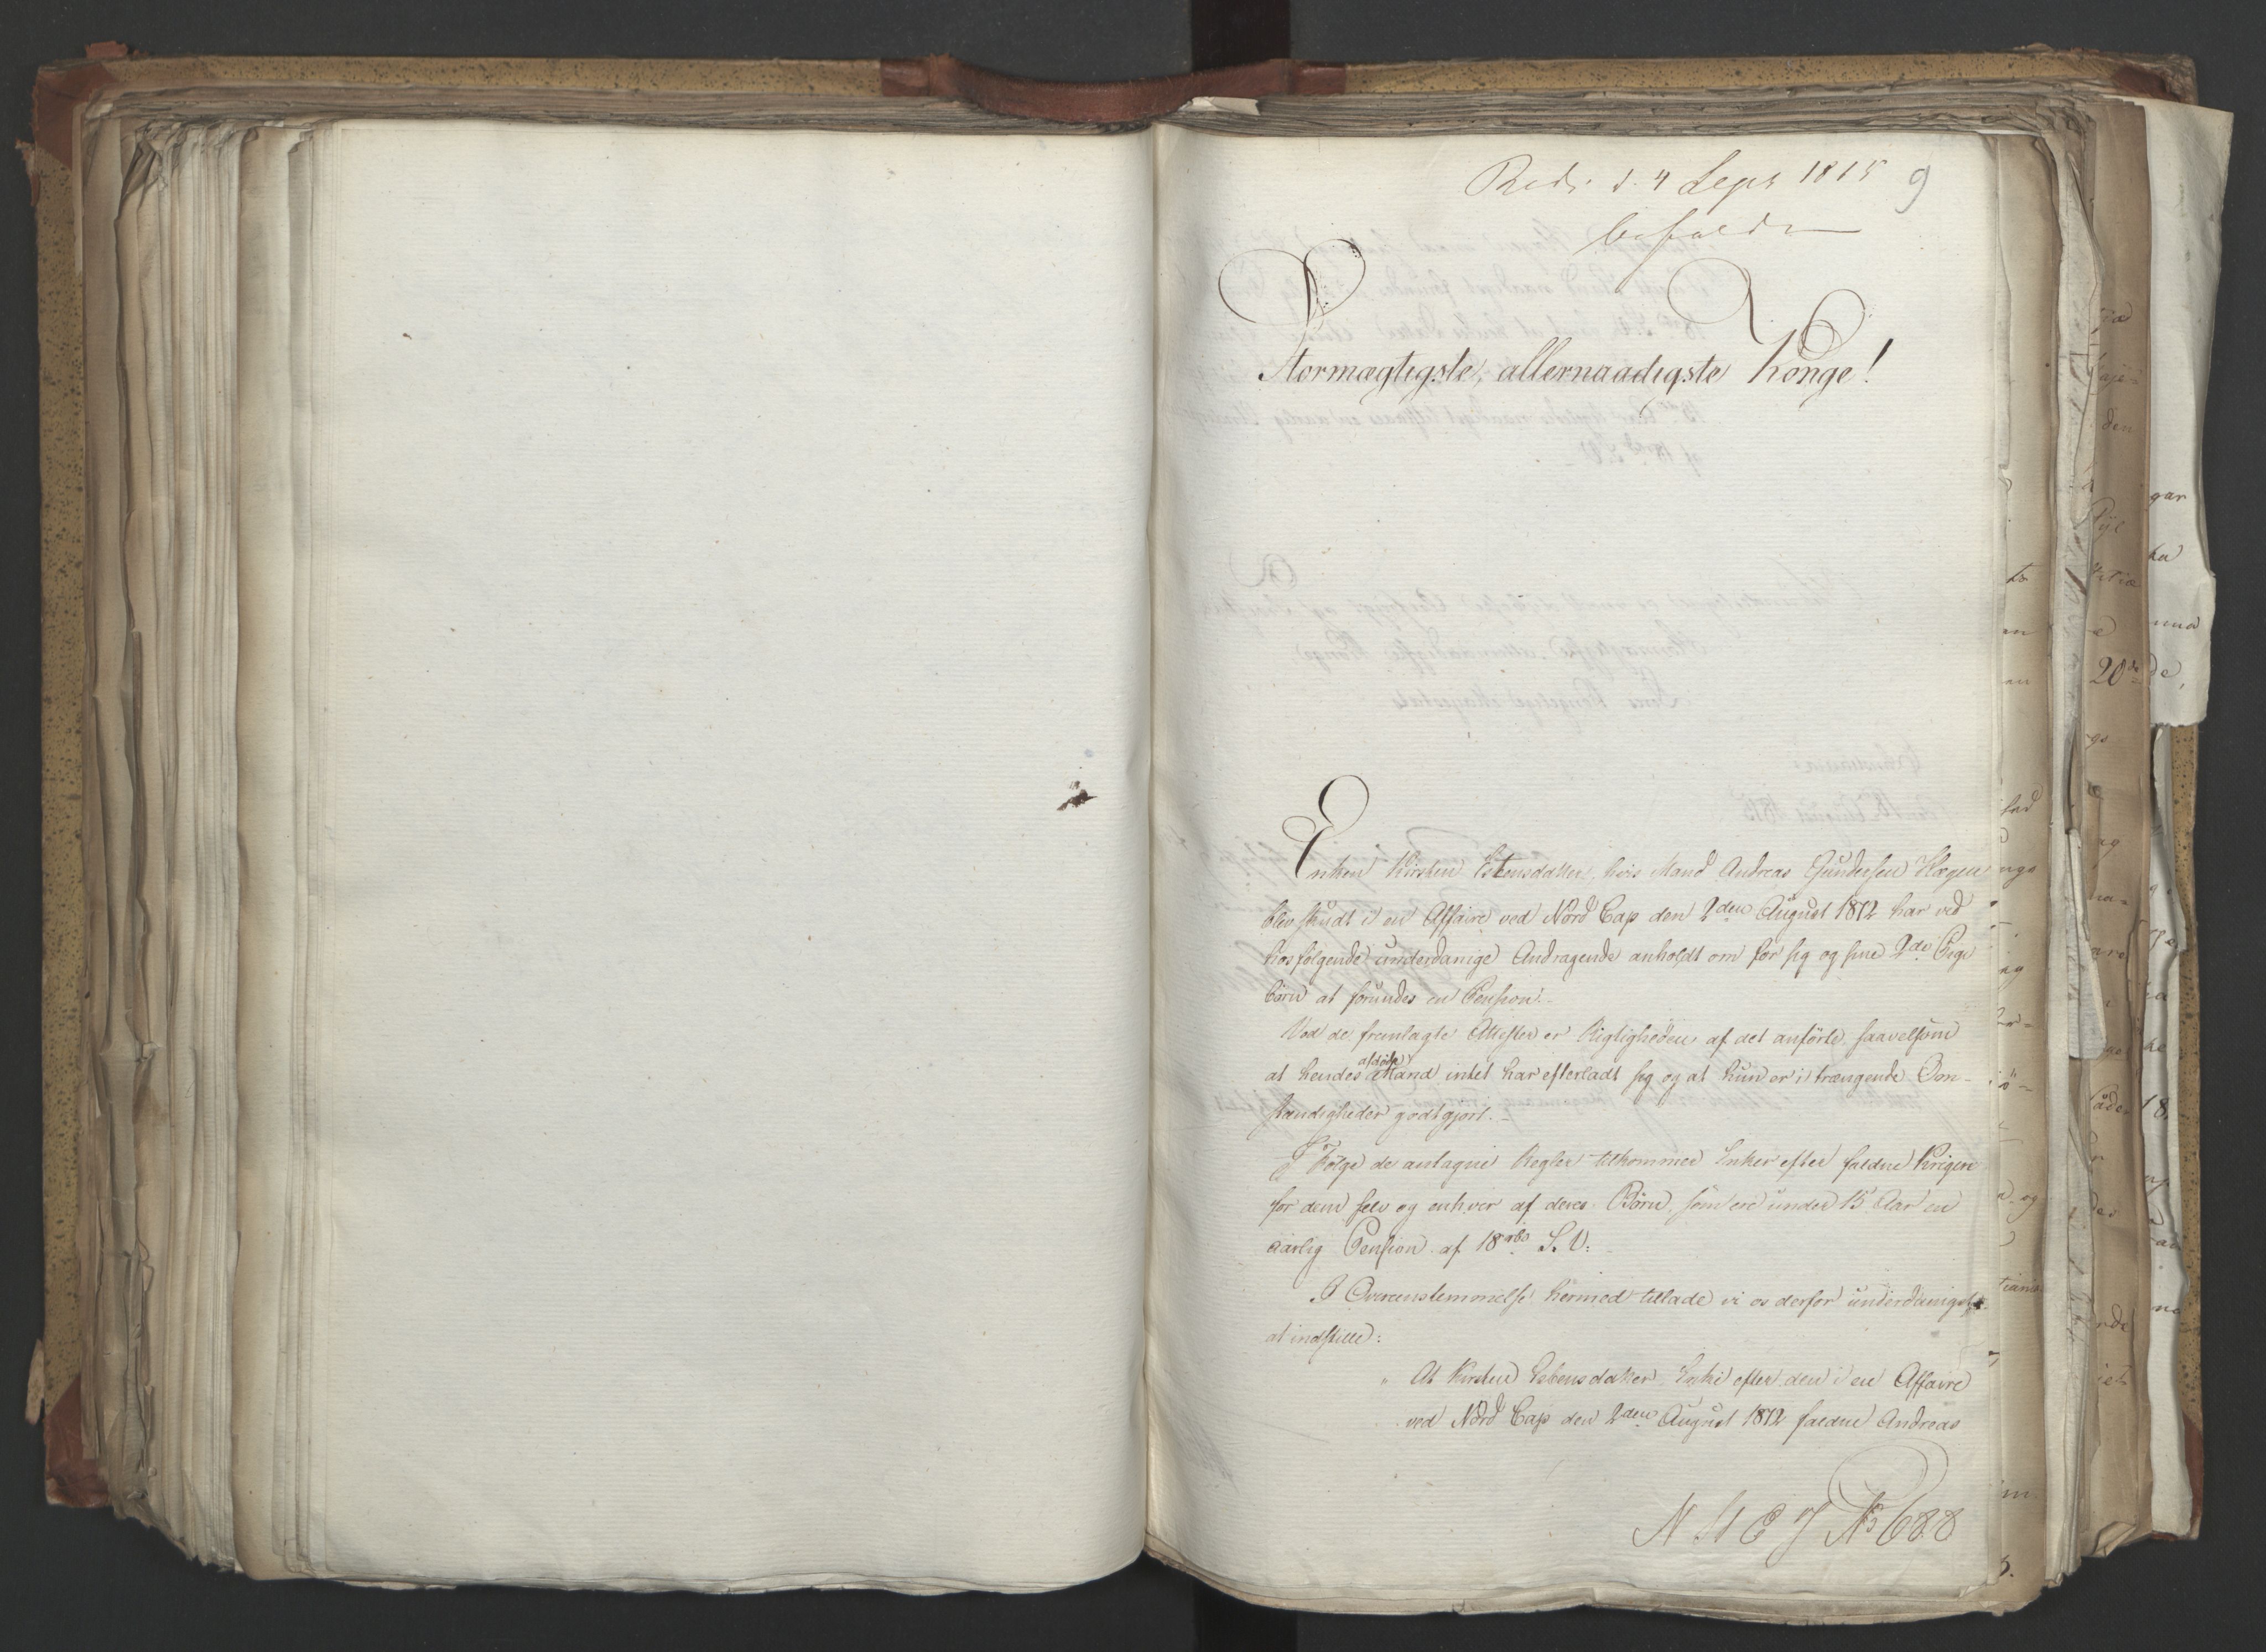 d. 4 Sept 1815 9
Stormægtigste, allernaadigste Konge!
Enken Kirsten Estensdatter, hvis Mand Andreas Gundersen Hagen
blev skudt i en Affaire ved Nord Cap den 2den August 1812 har ved
hosfølgende underdanige Andragende anholdt om for sig og sine 2de Pige
børn at forundes en Pension.
Ved de fremlagte Attester er Rigtigheden af det anførte, saavelsom
at hendes afdøde Mand intet har efterladt sig og at hun er i trængende Om-
stændigheder godtgjort.
I Følge de antagne Regler tilkommer Enker efter faldne Krigere
for dem selv og enhver af deres Børn, som ere under 15 Aar en
aarlig Pension af 18 rbd S. V:
I Overeenstemmelse hermed tillade vi os derfor underdanigst
at indstille:
" At Kirsten Esbensdatter Enke efter den i en Affaire
ved Nord Cap den 2den August 1812 faldne Andreas
No 688